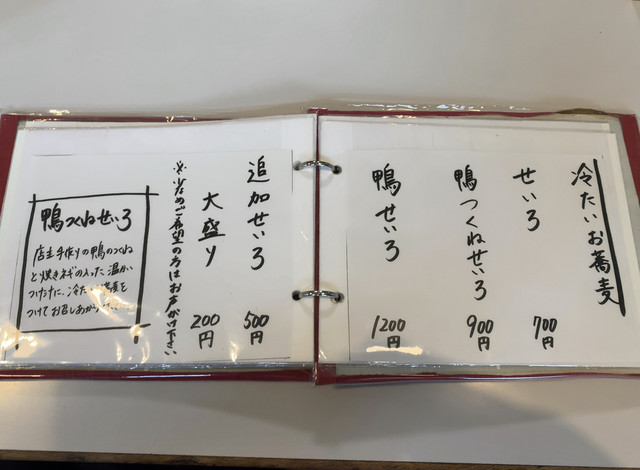 冷たいお蕎麦
せいろ 700円
鴨つくねせいろ 900円
鴨せいろ 1200円
追加せいろ 500円
大盛り 200円
※少なめご希望の方はお声がけ下さい
鴨つくねせいろ
店主手作りの鴨のつくね
と焼きネギの入った温かい
つけだに、冷たい
つけてお召しあがり